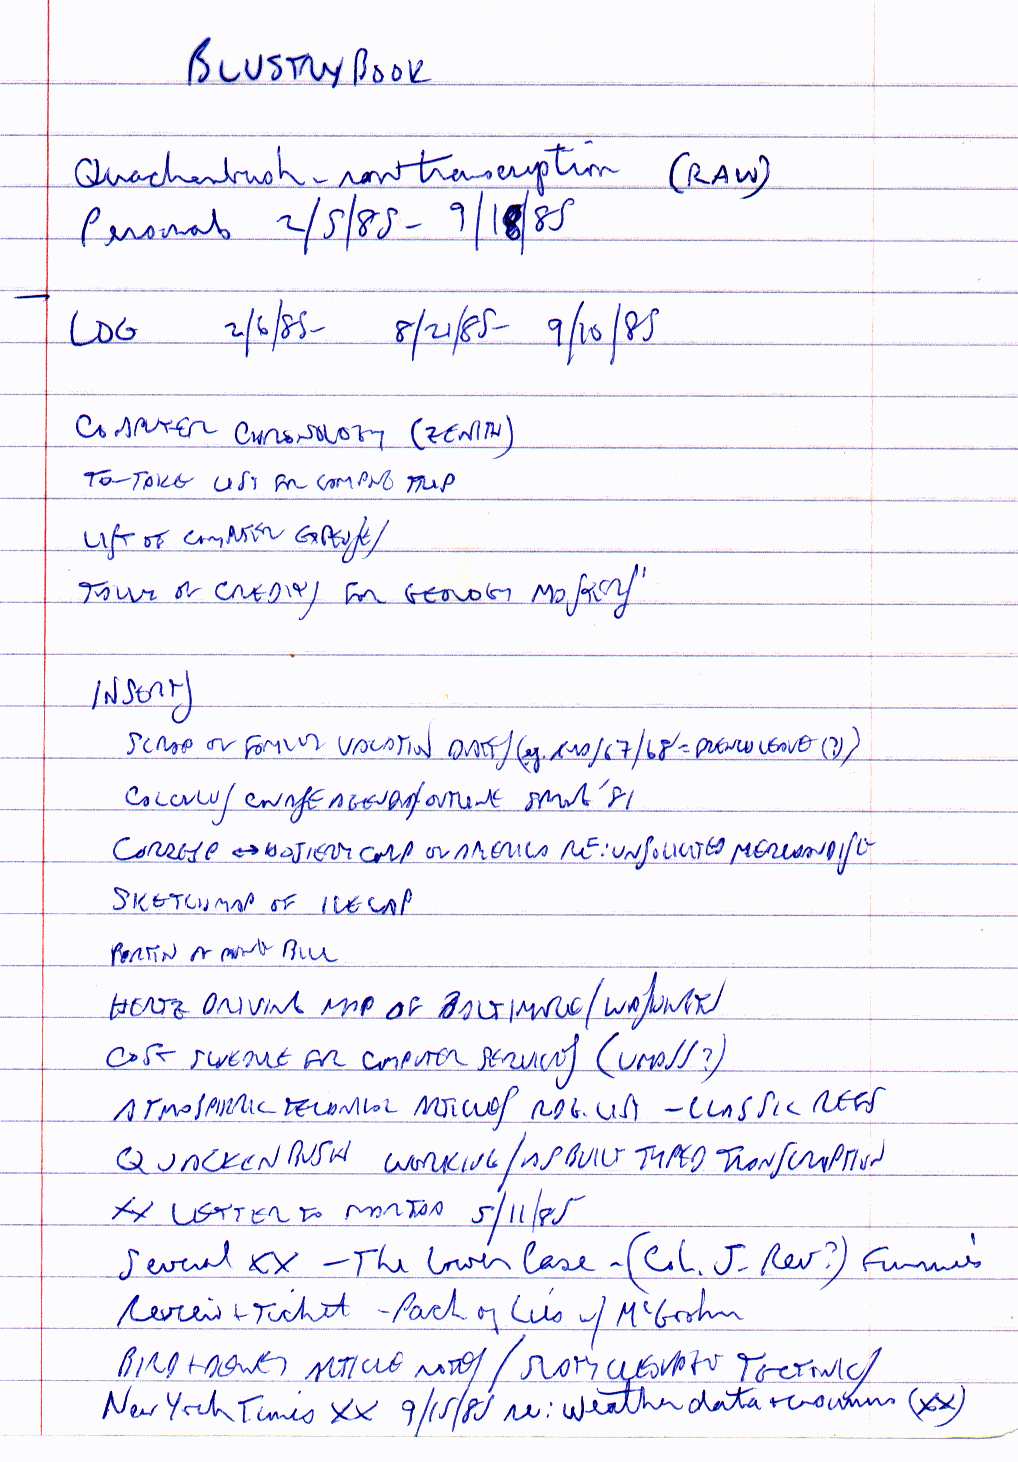 BLUSTRY BOOK
Quackenbush - raw transcription (RAW)
Personals 2/5/85 - 9/18/85
LOG 2/6/85 - 8/21/85 - 9/10/85
COMPUTER CHRONOLOGY (ZENITH)
TO-TAKE LIST FOR CAMPING TRIP
LIST OF COMPUTER EXPENSES
OF CREDITS FOR GEOLOGY MASTERS'
INSERTS
SCRAP OF FAMILY VACATION DATES (eg. /67/68 = LEAVE (?))
CALCULUS COURSE AGENDA/OUTLINE SPRING '81
CORRESP ↔ HOSIERY CORP OF AMERICA RE: UNSOLICITED MERCHANDISE
SKETCHMAP OF ICECAP
PORTION OF PHONE BILL
HERTZ DRIVING MAP OF BALTIMORE/WASHINGTON
COST SCHEDULE FOR COMPUTER SERVICES (UMASS?)
ATMOSPHERIC TECHNICAL ARTICLES RDG. LIST - CLASSIC REFS
QUACKENBUSH WORKING/AS BUILT TYPED TRANSCRIPTION
XX LETTER TO 5/11/85
Several XX - The Lower Case - (Col. J. Rev?) Funnies
Review + Ticket - Pack of Lies w/ McGoohan
BIRD + DEWEY ARTICLE NOTES / TECTONICS
New York Times XX 9/15/85 re: weather data + crowns (XX)